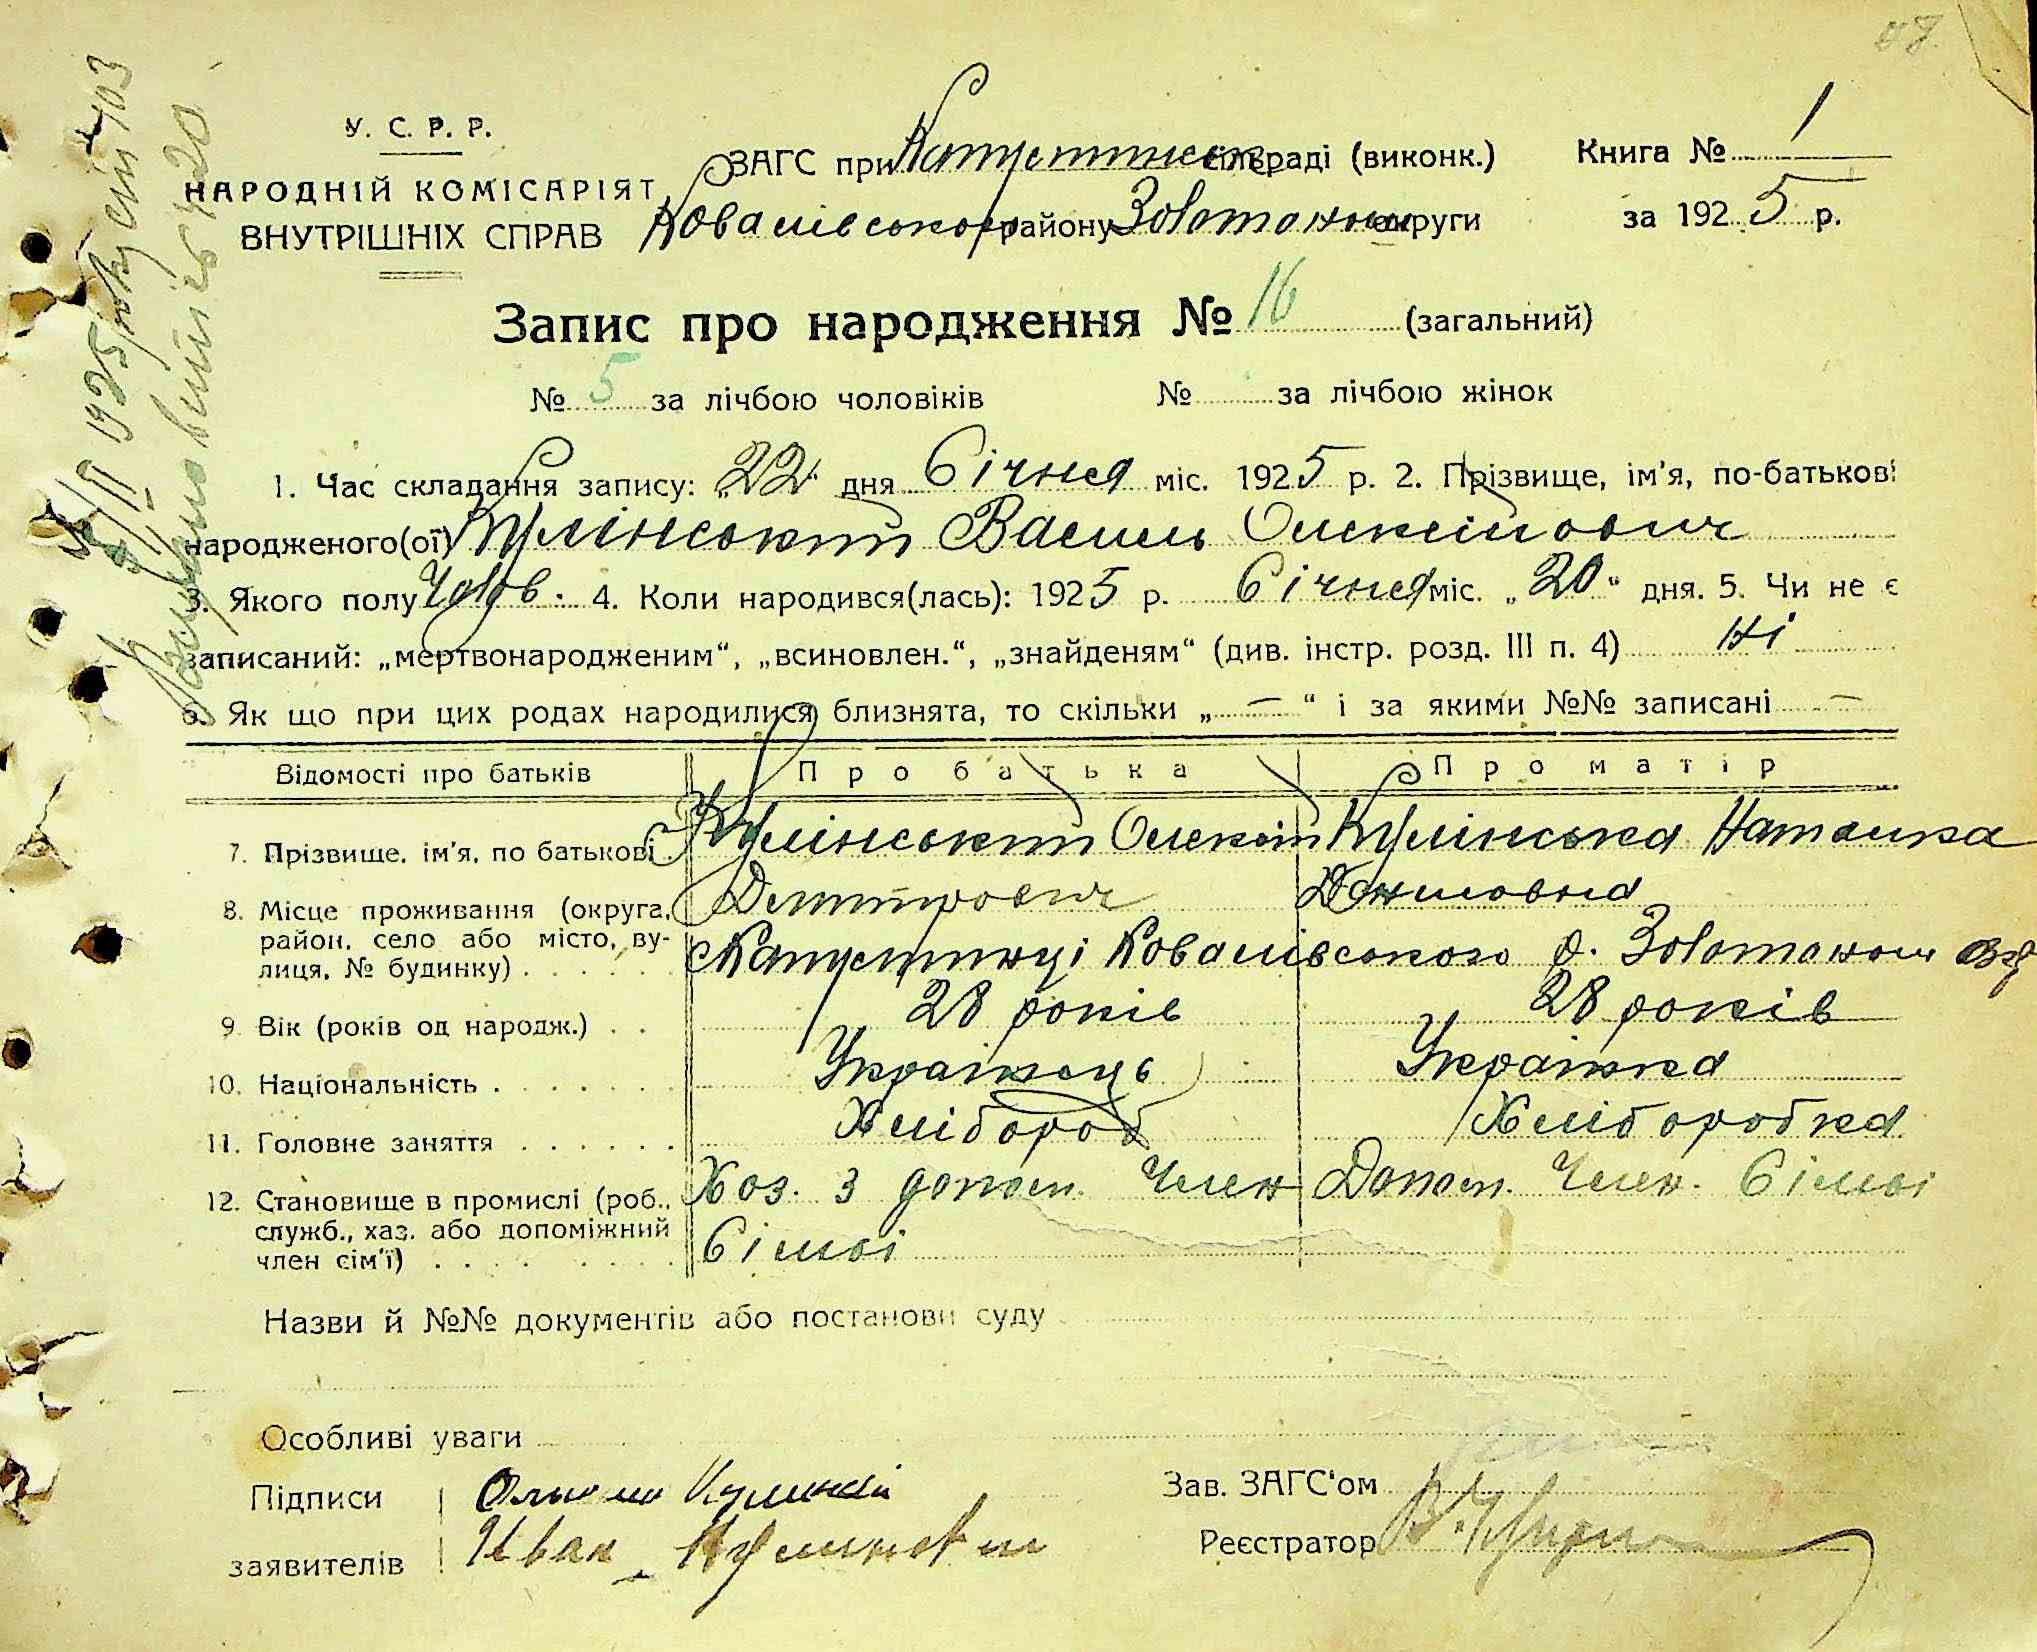 У. С. Р. Р.
НАРОДНІЙ КОМІСАРІЯТ
ВНУТРІШНІХ СПРАВ
ЗАГС при Капустинськ сільраді (виконк.)
Ковалівського району Золотонош округи
Книга № 1
за 1925 р.
Запис про народження № 16 (загальний)
№ 5 за лічбою чоловіків № за лічбою жінок
1. Час складання запису: „22" дня Січня міс. 1925 р. 2. Прізвище, ім'я, по-батькові
народженого(ої) Кулінський Василь Олексійович
3. Якого полу Чолов. 4. Коли народився(лась): 1925 р. Січня міс. „20" дня. 5. Чи не є
записаний: „мертвонародженим", „всиновлен.", „знайденям" (див. інстр. розд. III п. 4) Ні
6. Як що при цих родах народилися близнята, то скільки „ — " і за якими №№ записані —
Відомості про батьків Про батька Про матір
7. Прізвище, ім'я, по батькові Кулінський Олексій Кулінська Наталка
Дмитрович
8. Місце проживання (округа,
район, село або місто, ву-
лиця, № будинку) Капустинці Ковалівського р. Золотонош
9. Вік (років од народж.) 28 років 28 років
10. Національність Українець Українка
11. Головне заняття Хлібороб Хліборобка
12. Становище в промислі (роб.,
служб., хаз. або допоміжний
член сім'ї) Хоз. з допом. Член Допом. Член. Сімьї
Сімьі
Назви й №№ документів або постанови суду
Особливі уваги
Підписи
заявителів Иван
Зав. ЗАГС'ом
Реєстратор